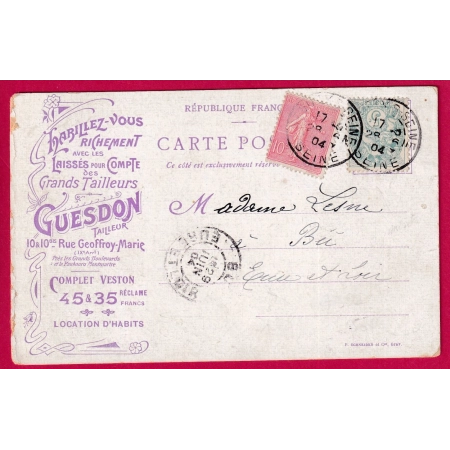 HABILLEZ-VOUS
RICHEMENT
AVEC LES
LAISSÉS POUR COMPTE
des
Grands Tailleurs
GUESDON
TAILLEUR
10 & 10bis Rue Geoffroy-Marie
Près les Grands Boulevards
et le Faubourg Montmartre
COMPLET VESTON
45 & 35 RÉCLAME
FRANCS
LOCATION D'HABITS
RÉPUBLIQUE FRANÇ
CARTE PO
Ce côté est exclusivement réservé
17
28
04
SEINE
SEINE
17
28
04
SEINE
Madame Lesne
à Bû
Eure et Loir